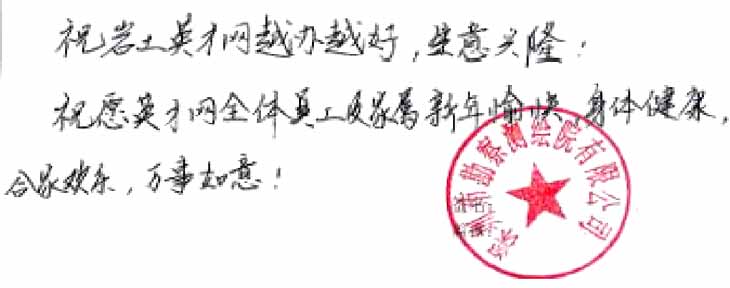 祝岩土英才网越办越好，生意兴隆！
祝愿英才网全体员工及家属新年愉快，身体健康，
合家欢乐，万事如意！
深圳市勘察测绘院有限公司